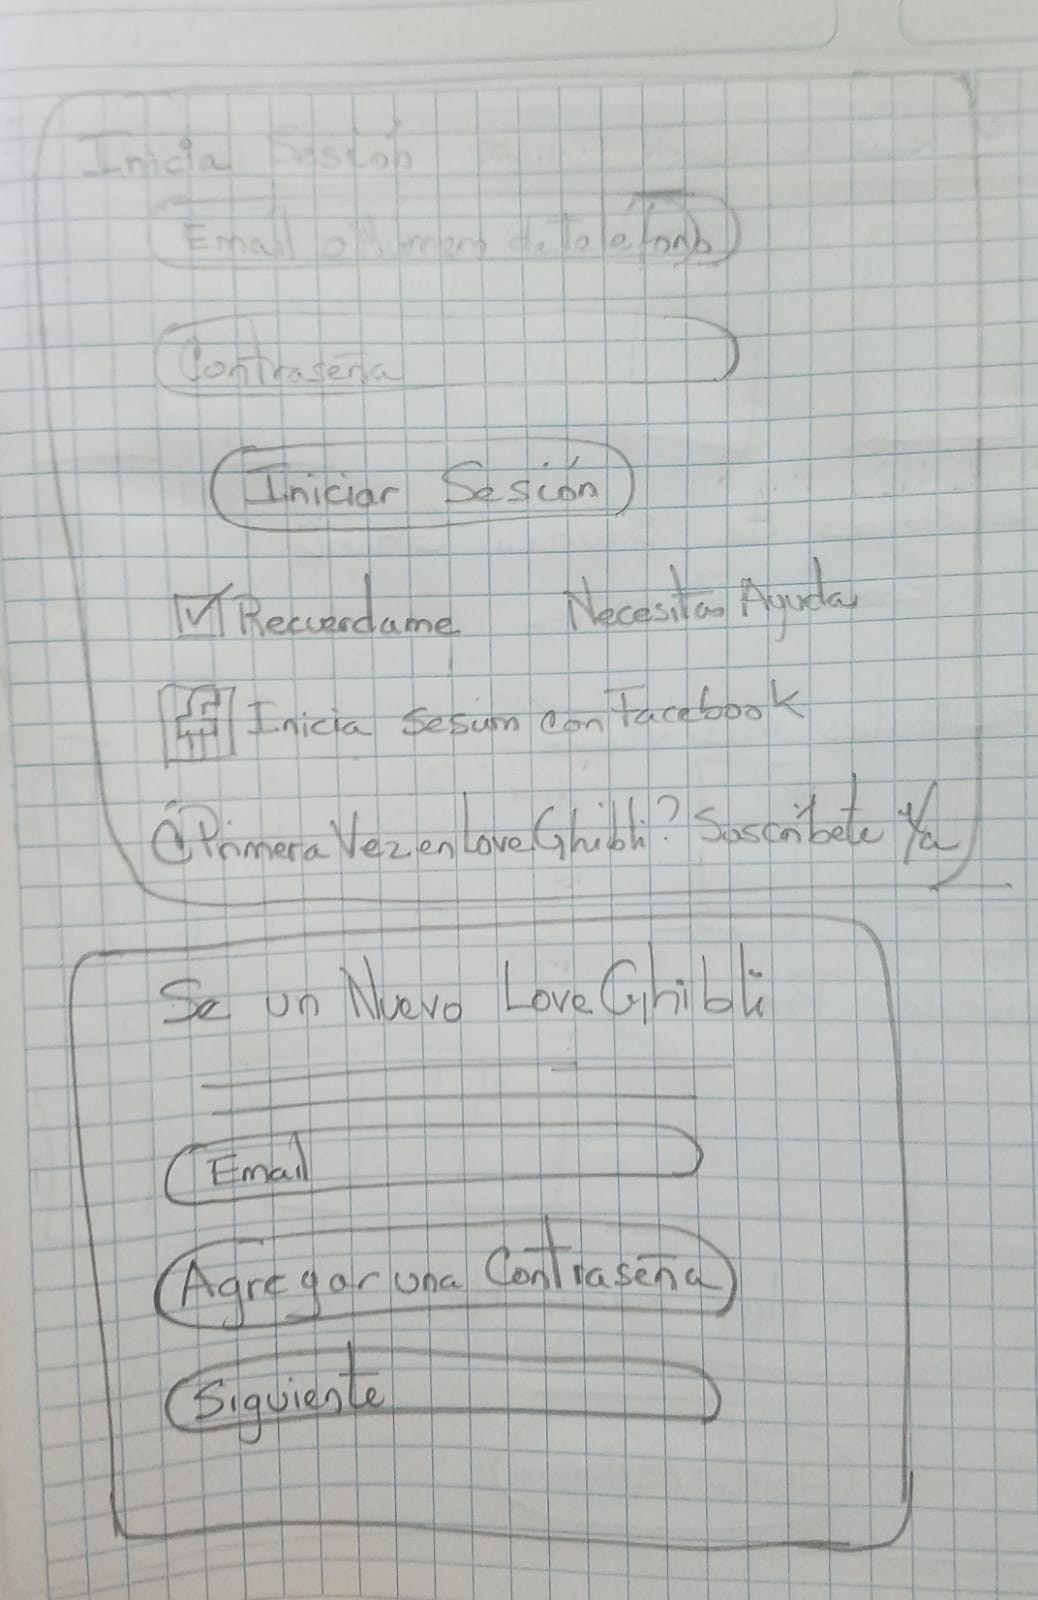 Inicia Sesión
Email o Numero de Teléfono
Contraseña
Iniciar Sesión
Recuerdame Necesitas Ayuda
Inicia Sesion con Facebook
¿Primera Vez en Love Ghibli? Suscribete Ya
Se un Nuevo Love Ghibli
Email
Agregar una Contraseña
Siguiente